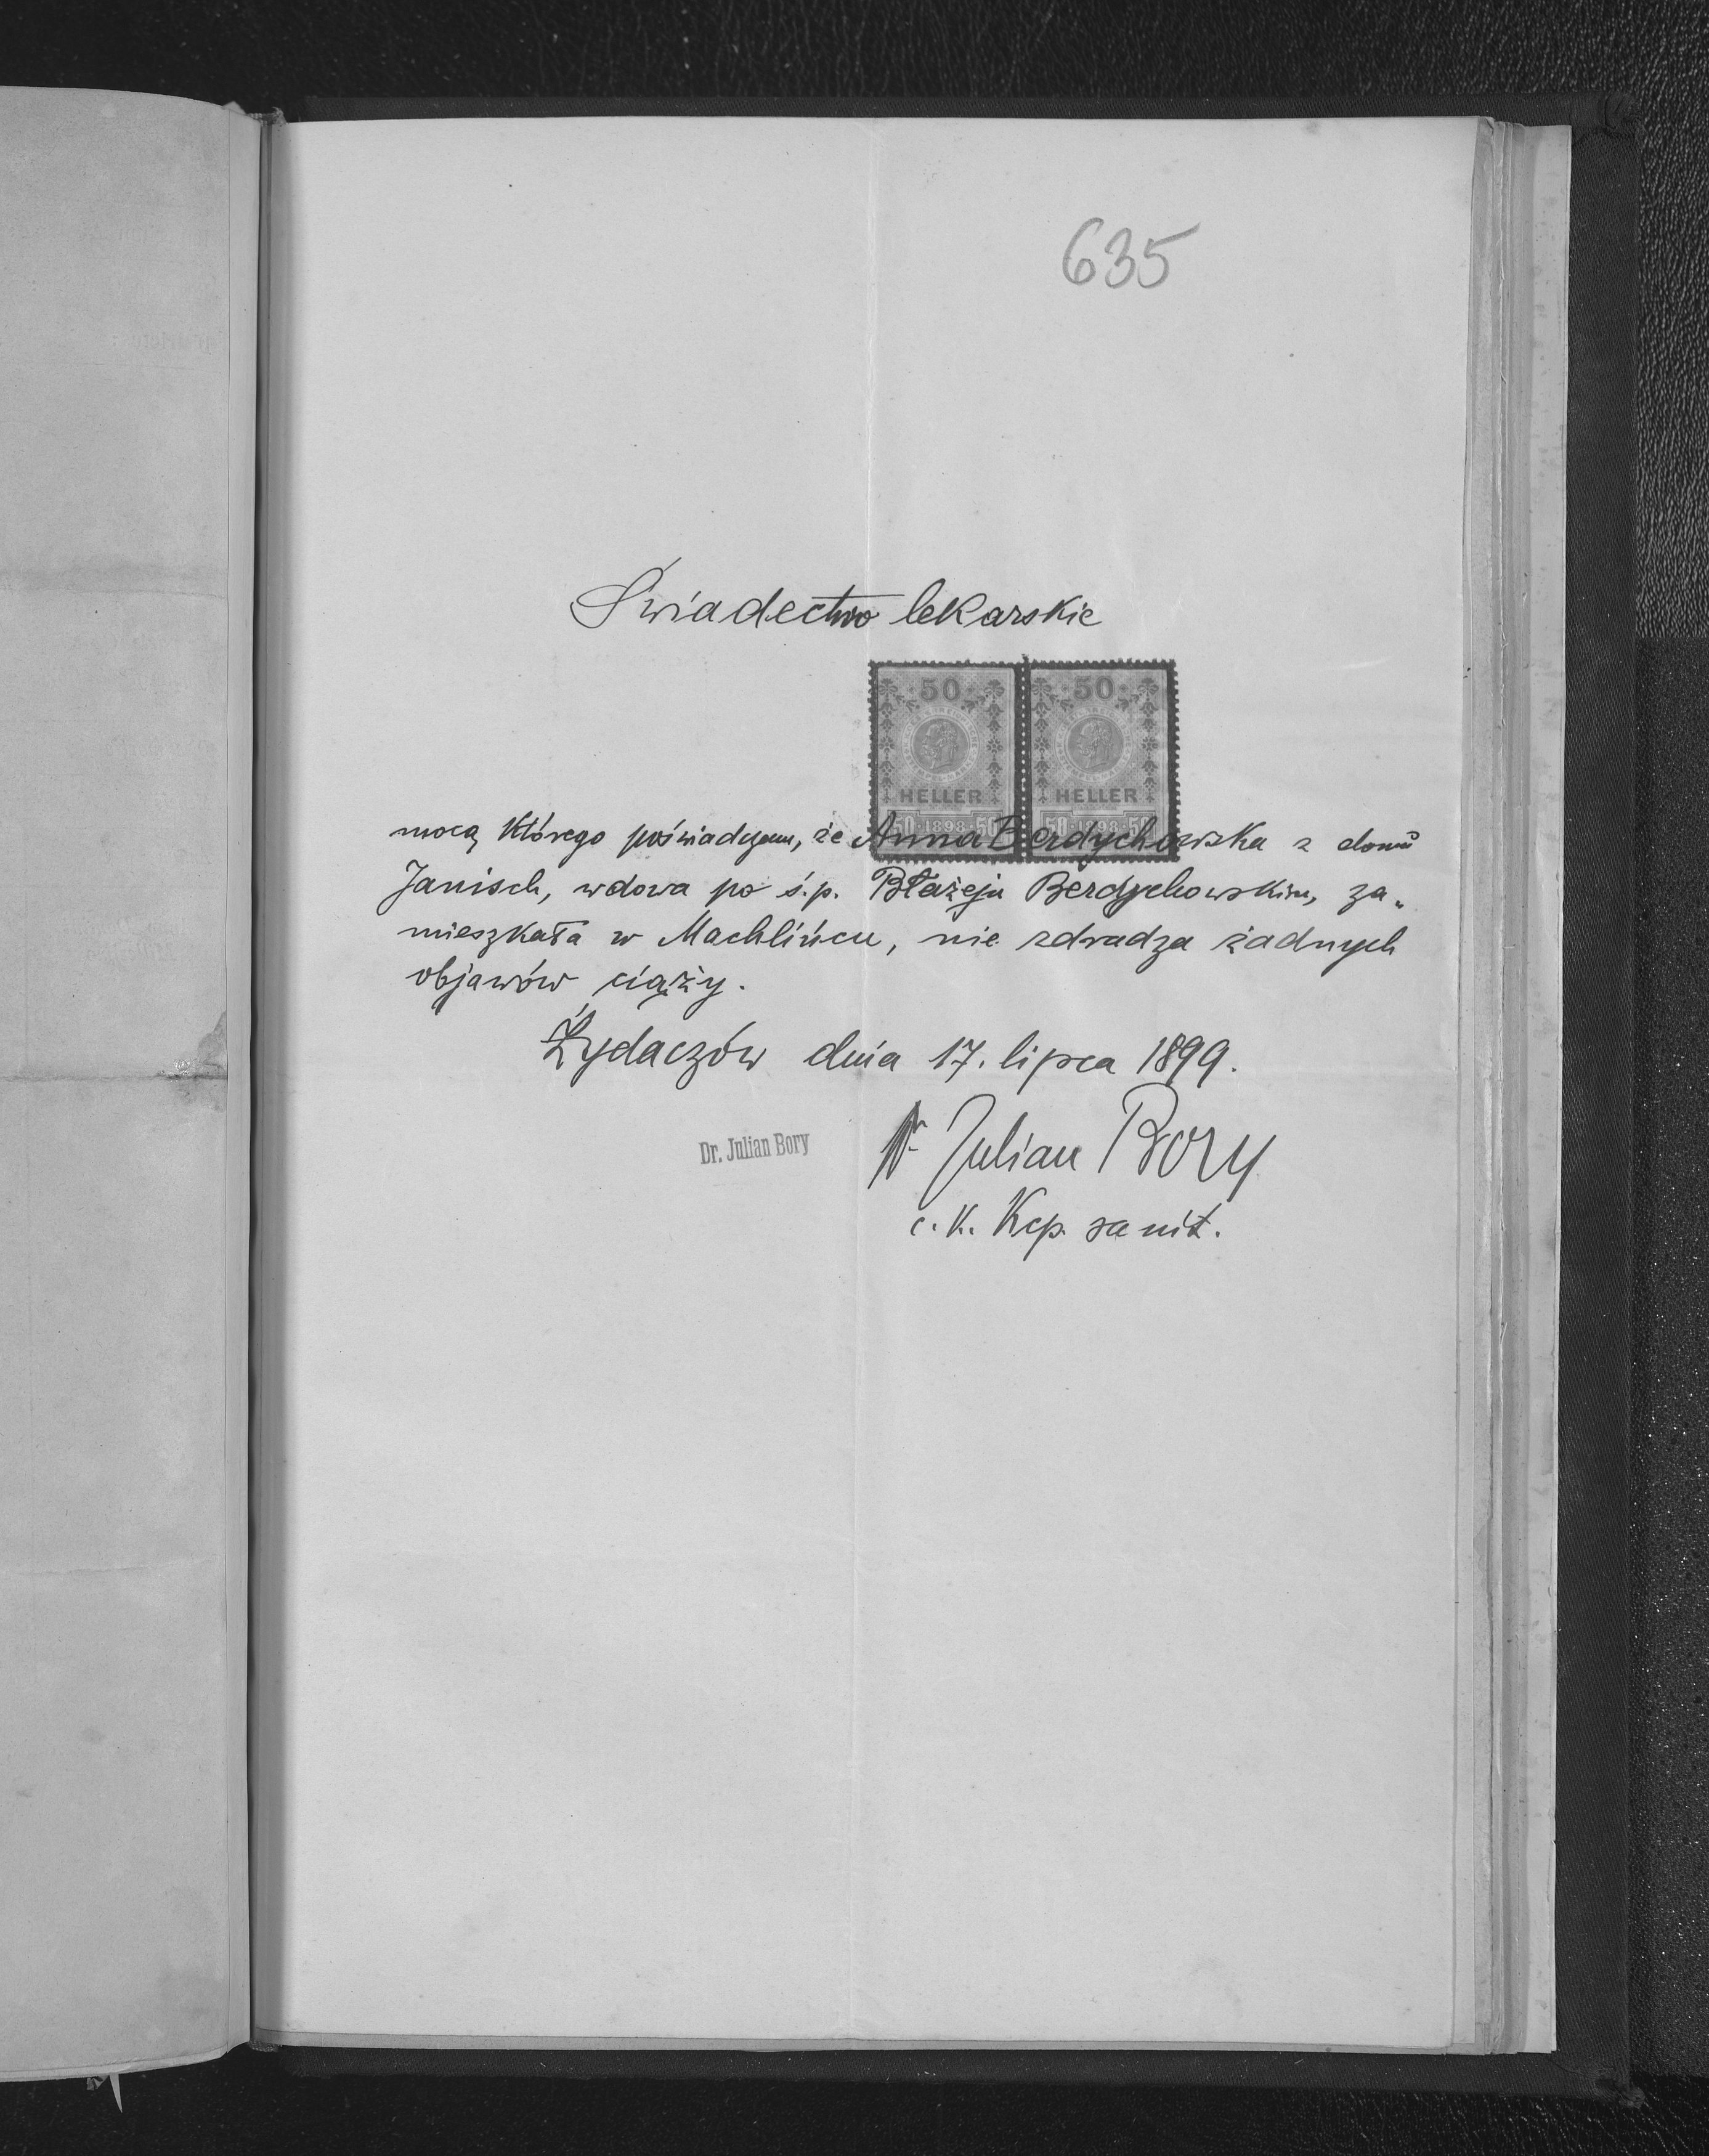 635
Świadectwo lekarskie
50 50
HELLER HELLER
50·1898·50 50·1898·50
mocą którego poświadczam, że Anna Berdychowska z domu
Janisch, wdowa po ś.p. Błażeju Berdychowskim, za„
mieszkała w Machlińcu, nie zdradza żadnych
objawów ciąży.
Żydaczów dnia 17. lipca 1899.
Dr. Julian Bory Dr Julian Bory
c. k. sanit.